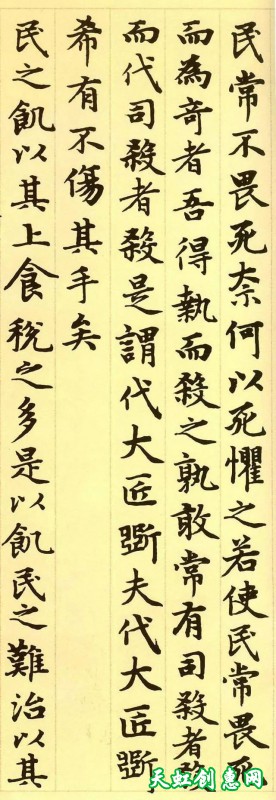 民常不畏死柰何以死懼之若使民常畏死
而為奇者吾得執而殺之孰敢常有司殺者殺
而代司殺者殺是謂代大匠斲夫代大匠斲
希有不傷其手矣
民之飢以其上食稅之多是以飢民之難治以其
天虹创惠网